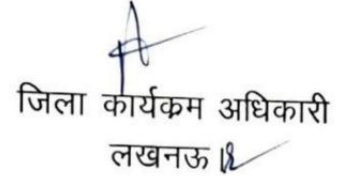 जिला कार्यक्रम अधिकारी
लखनऊ।